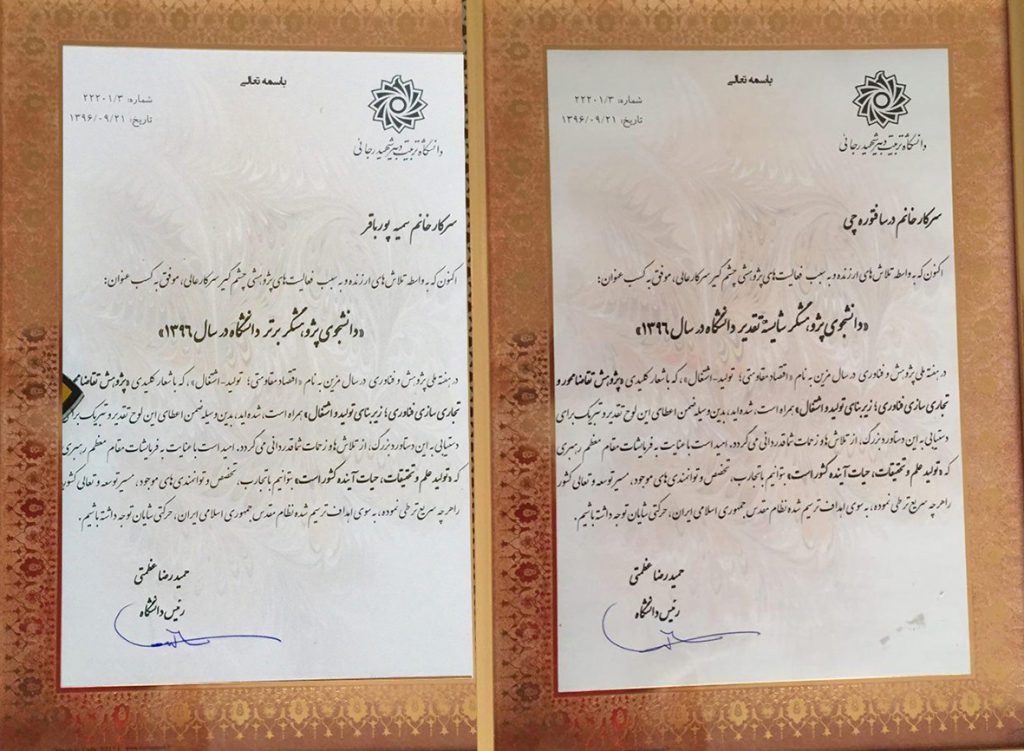 باسمه تعالی
شماره: ۲۲۲۰۱/۳
تاریخ: ۱۳۹۶/۰۹/۲۱
دانشگاه تربیت دبیر شهید رجائی
سرکار خانم سمیه پورباقر
اکنون که به واسطه تلاش های ارزنده و به سبب فعالیت های پژوهشی چشم گیر سرکار عالی، موفق به کسب عنوان:
«دانشجوی پژوهشگر برتر دانشگاه در سال ۱۳۹۶»
در هفته ملی پژوهش و فناوری در سال مزین به نام «اقتصاد مقاومتی؛ تولید-اشتغال»، که با شعار کلیدی «پژوهش تقاضامحو
تجاری سازی فناوری؛ زیربنای تولید و اشتغال» همراه است، شده اید، بدین وسیله ضمن اعطای این لوح تقدیر و تبریک برای
دستیابی به این دستاورد بزرگ، از تلاش ها و زحمات شما قدردانی می گردد. امید است با عنایت به فرمایشات مقام معظم رهبری
که «تولید علم و تحقیقات، حیات آینده کشور است» بتوانیم با تجارب، تخصص و توانمندی های موجود، مسیر توسعه و تعالی کشور
را هر چه سریع تر طی نموده، به سوی اهداف ترسیم شده نظام مقدس جمهوری اسلامی ایران، حرکتی شایان توجه داشته باشیم.
حمیدرضا عظمتی
رئیس دانشگاه
باسمه تعالی
شماره: ۲۲۲۰۱/۳
تاریخ: ۱۳۹۶/۰۹/۲۱
دانشگاه تربیت دبیر شهید رجائی
سرکار خانم درسا فتوره چی
اکنون که به واسطه تلاش های ارزنده و به سبب فعالیت های پژوهشی چشم گیر سرکار عالی، موفق به کسب عنوان:
«دانشجوی پژوهشگر شایستۀ تقدیر دانشگاه در سال ۱۳۹۶»
در هفته ملی پژوهش و فناوری در سال مزین به نام «اقتصاد مقاومتی؛ تولید-اشتغال»، که با شعار کلیدی «پژوهش تقاضامحور و
تجاری سازی فناوری؛ زیربنای تولید و اشتغال» همراه است، شده اید، بدین وسیله ضمن اعطای این لوح تقدیر و تبریک برای
دستیابی به این دستاورد بزرگ، از تلاش ها و زحمات شما قدردانی می گردد. امید است با عنایت به فرمایشات مقام معظم رهبری
که «تولید علم و تحقیقات، حیات آینده کشور است» بتوانیم با تجارب، تخصص و توانمندی های موجود، مسیر توسعه و تعالی کشور
را هر چه سریع تر طی نموده، به سوی اهداف ترسیم شده نظام مقدس جمهوری اسلامی ایران، حرکتی شایان توجه داشته باشیم.
حمیدرضا عظمتی
رئیس دانشگاه